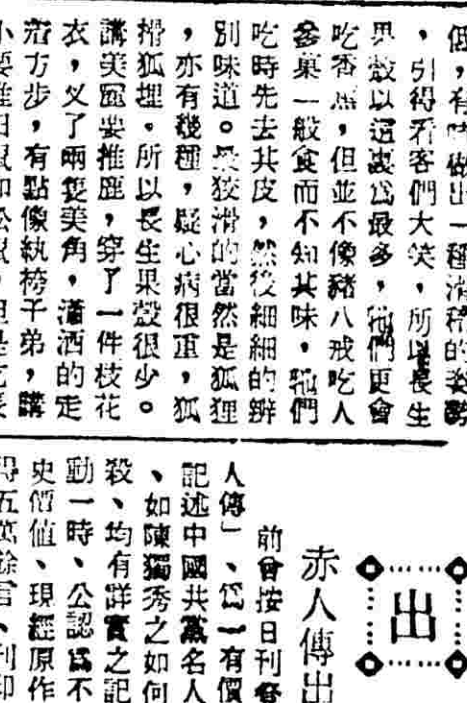 低，有時做出一種滑稽的姿勢
，引得看客們大笑，所以長生
果殼以這裏為最多，牠們更會
吃香蕉，但並不像豬八戒吃人
參菓一般食而不知其味，牠們
吃時先去其皮，然後細細的辨
別味道。最狡滑的當然是狐狸
，亦有幾種，疑心病很重，狐
搰狐埋。所以長生果殼很少。
講美麗要推鹿，穿了一件枝花
衣，叉了兩隻美角，瀟洒的走
着方步，有點像紈袴子弟，講
小要推田鼠和松鼠，
出
赤人傳出
前曾按日刊登
人傳」、為一有價
記述中國共黨名人
、如陳獨秀之如何
殺、均有詳實之記
動一時、公認為不
史價值、現經原作
得五萬餘言、刊印